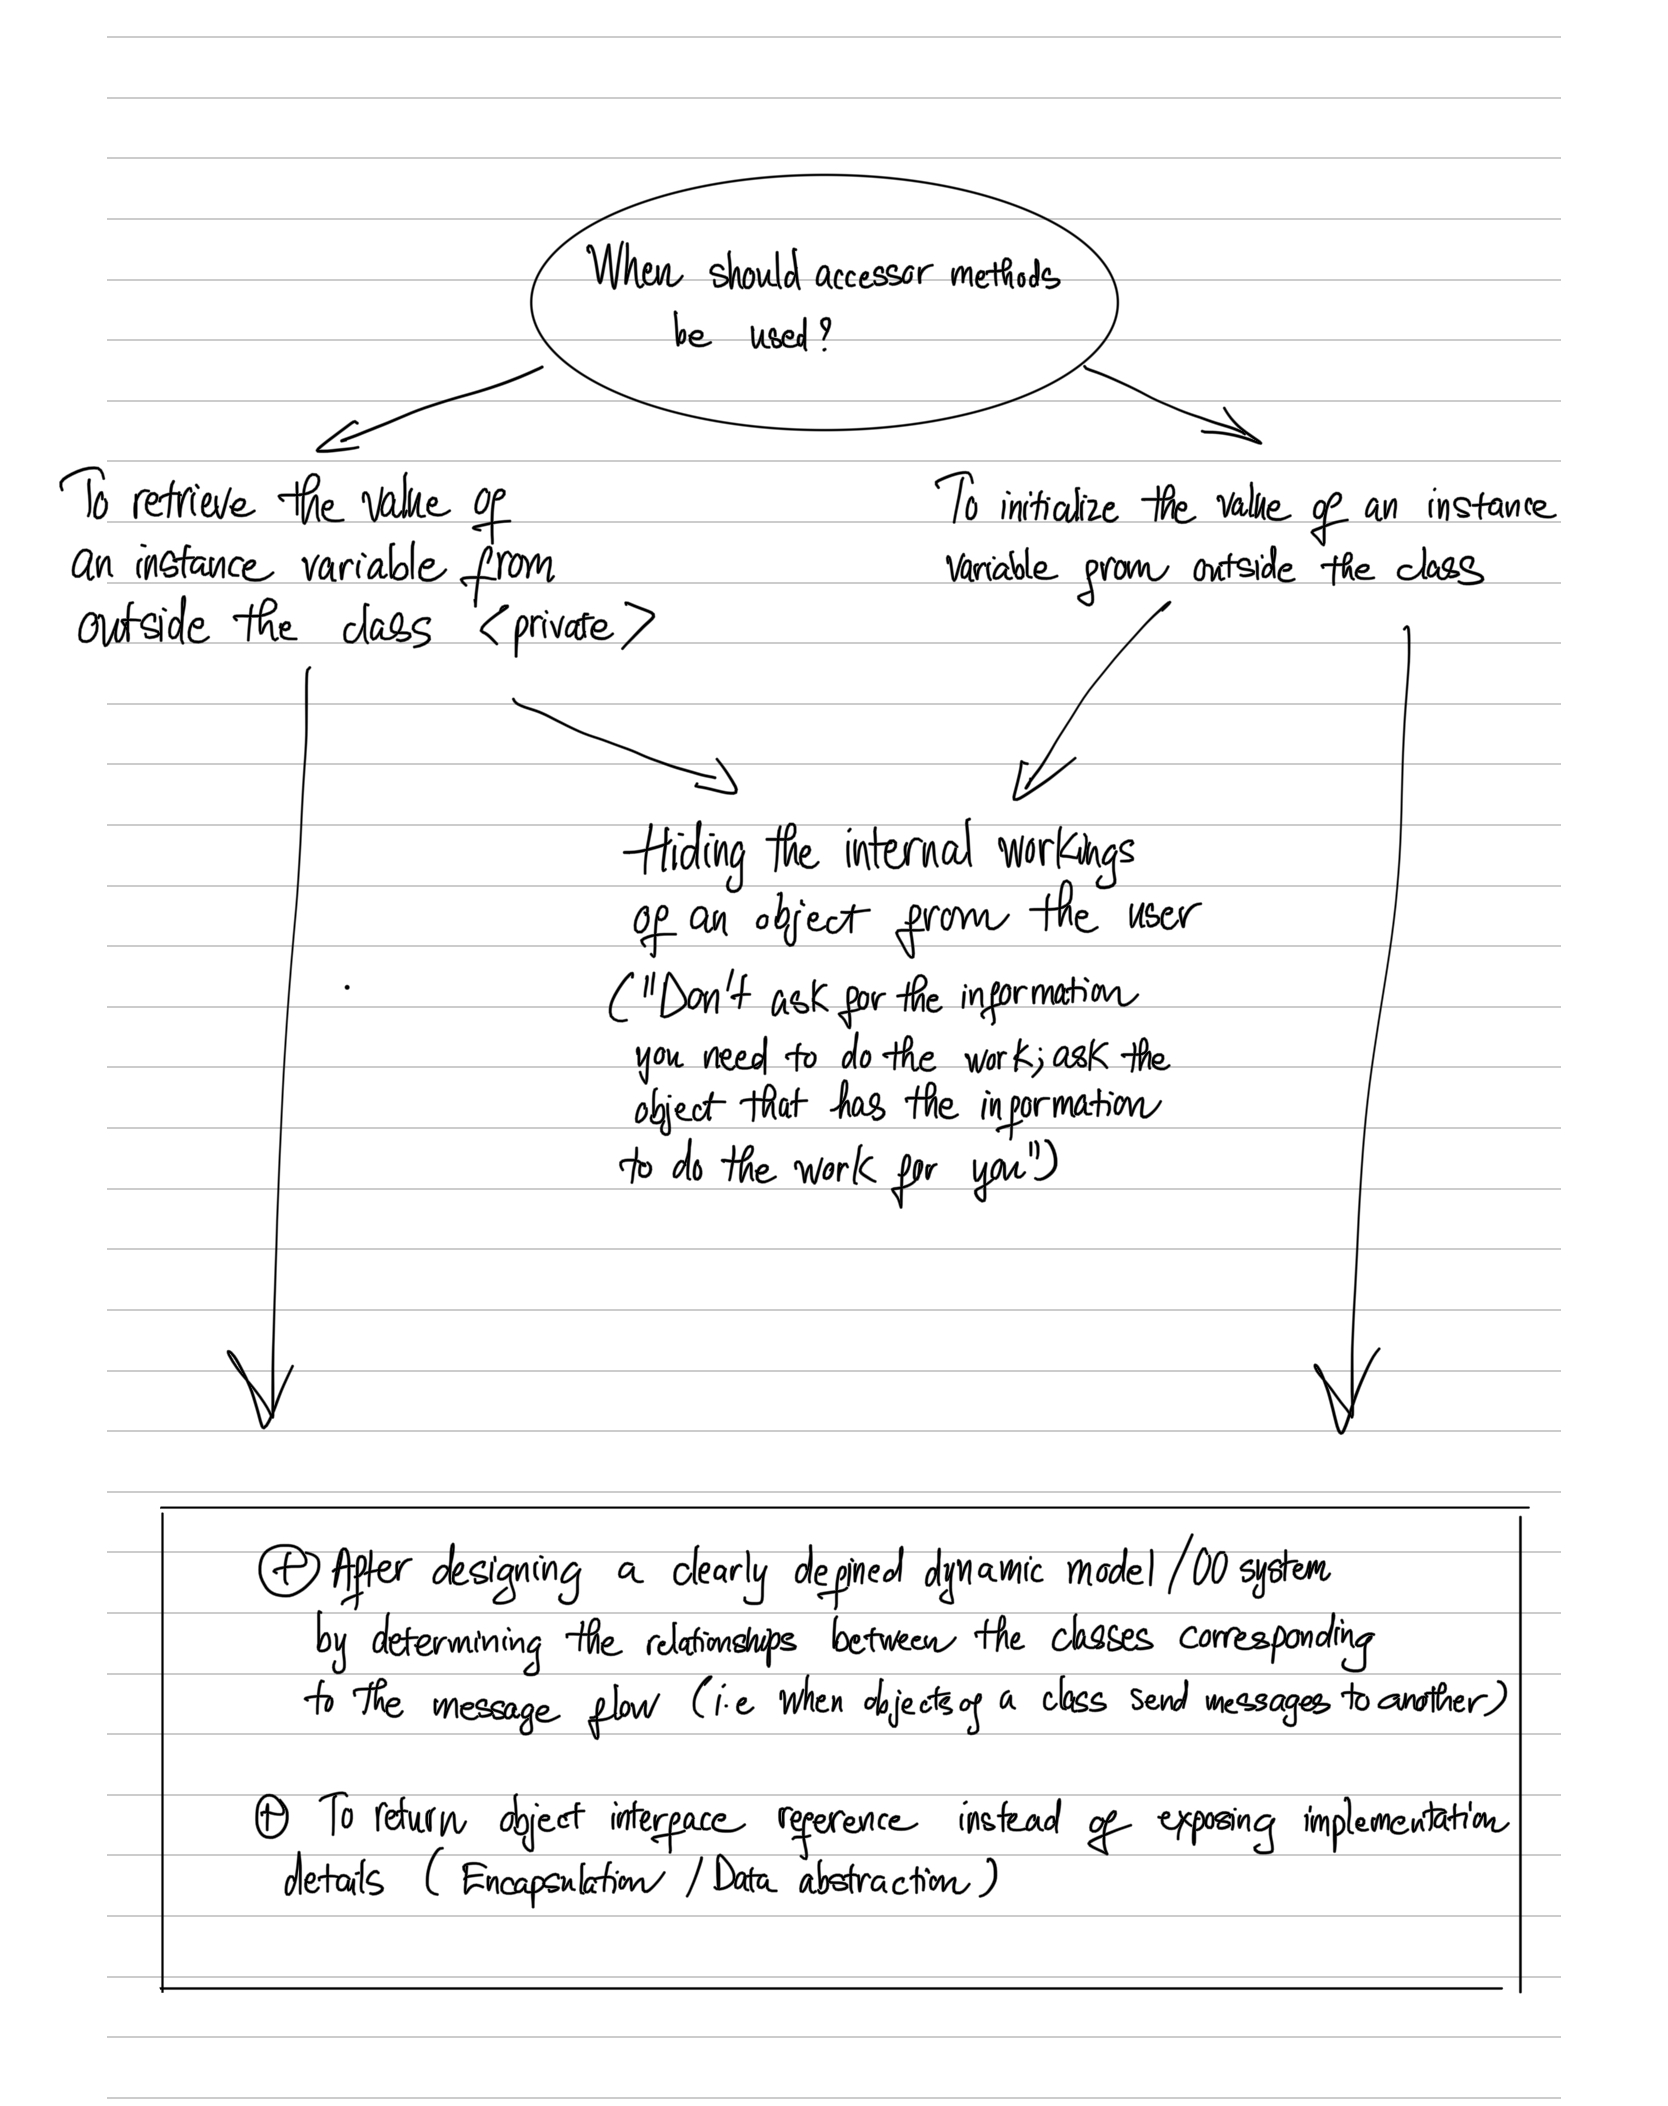 When should accessor methods
be used?
To retrieve the value of
an instance variable from
outside the class <private>
To initialize the value of an instance
variable from outside the class
Hiding the internal workings
of an object from the user
("Don't ask for the information
you need to do the work; ask the
object that has the information
to do the work for you")
⊕ After designing a clearly defined dynamic model / OO system
by determining the relationships between the classes corresponding
to the message flow (i.e when objects of a class send messages to another)
⊕ To return object interface reference instead of exposing implementation
details (Encapsulation / Data abstraction)